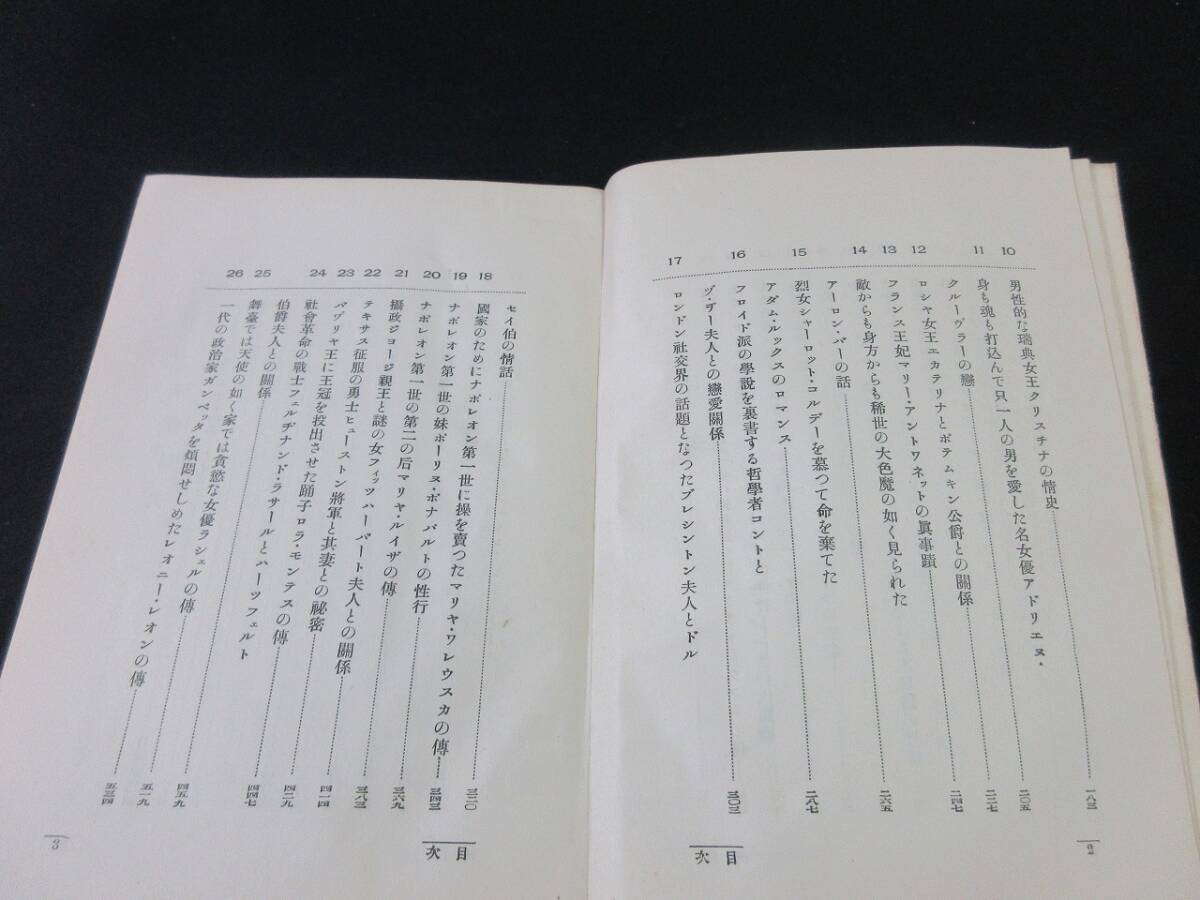 10 男性的な瑞典女王クリスチナの情史 一八三
11 身も魂も打込んで只一人の男を愛した名女優アドリエヌ・
クルーヴラーの戀 二〇五
12 ロシヤ女王エカテリナとポテムキン公爵との關係 二二七
13 フランス王妃マリー・アントワネットの眞事蹟 二四七
14 敵からも身方からも稀世の大色魔の如く見られた
アーロン・バーの話 二六五
15 烈女シャーロット・コルデーを慕つて命を棄てた
アダム・ルックスのロマンス 二八七
16 フロイド派の學說を裏書する哲學者コントと
ヅ・ヸー夫人との戀愛關係 三〇三
17 ロンドン社交界の話題となつたブレシントン夫人とドル
目次
2
セイ伯の情話 三二〇
18 國家のためにナポレオン第一世に操を賣つたマリヤ・ワレウスカの傳 三四三
19 ナポレオン第一世の妹ポーリヌ・ボナパルトの性行 三六九
20 ナポレオン第一世の第二の后マリヤ・ルイザの傳 三八三
21 攝政ジョージ親王と謎の女フィッツハーバート夫人との關係 四一四
22 テキサス征服の勇士ヒューストン將軍と其妻との祕密 四二九
23 バヴリヤ王に王冠を投出させた踊子ロラ・モンテスの傳 四四七
24 社會革命の戰士フェルヂナンド・ラサールとハーツフェルト
伯爵夫人との關係 四五九
25 舞臺では天使の如く家では貪慾な女優ラシェルの傳 五一九
26 一代の政治家ガンベッタを煩悶せしめたレオニー・レオンの傳 五三四
目次
3